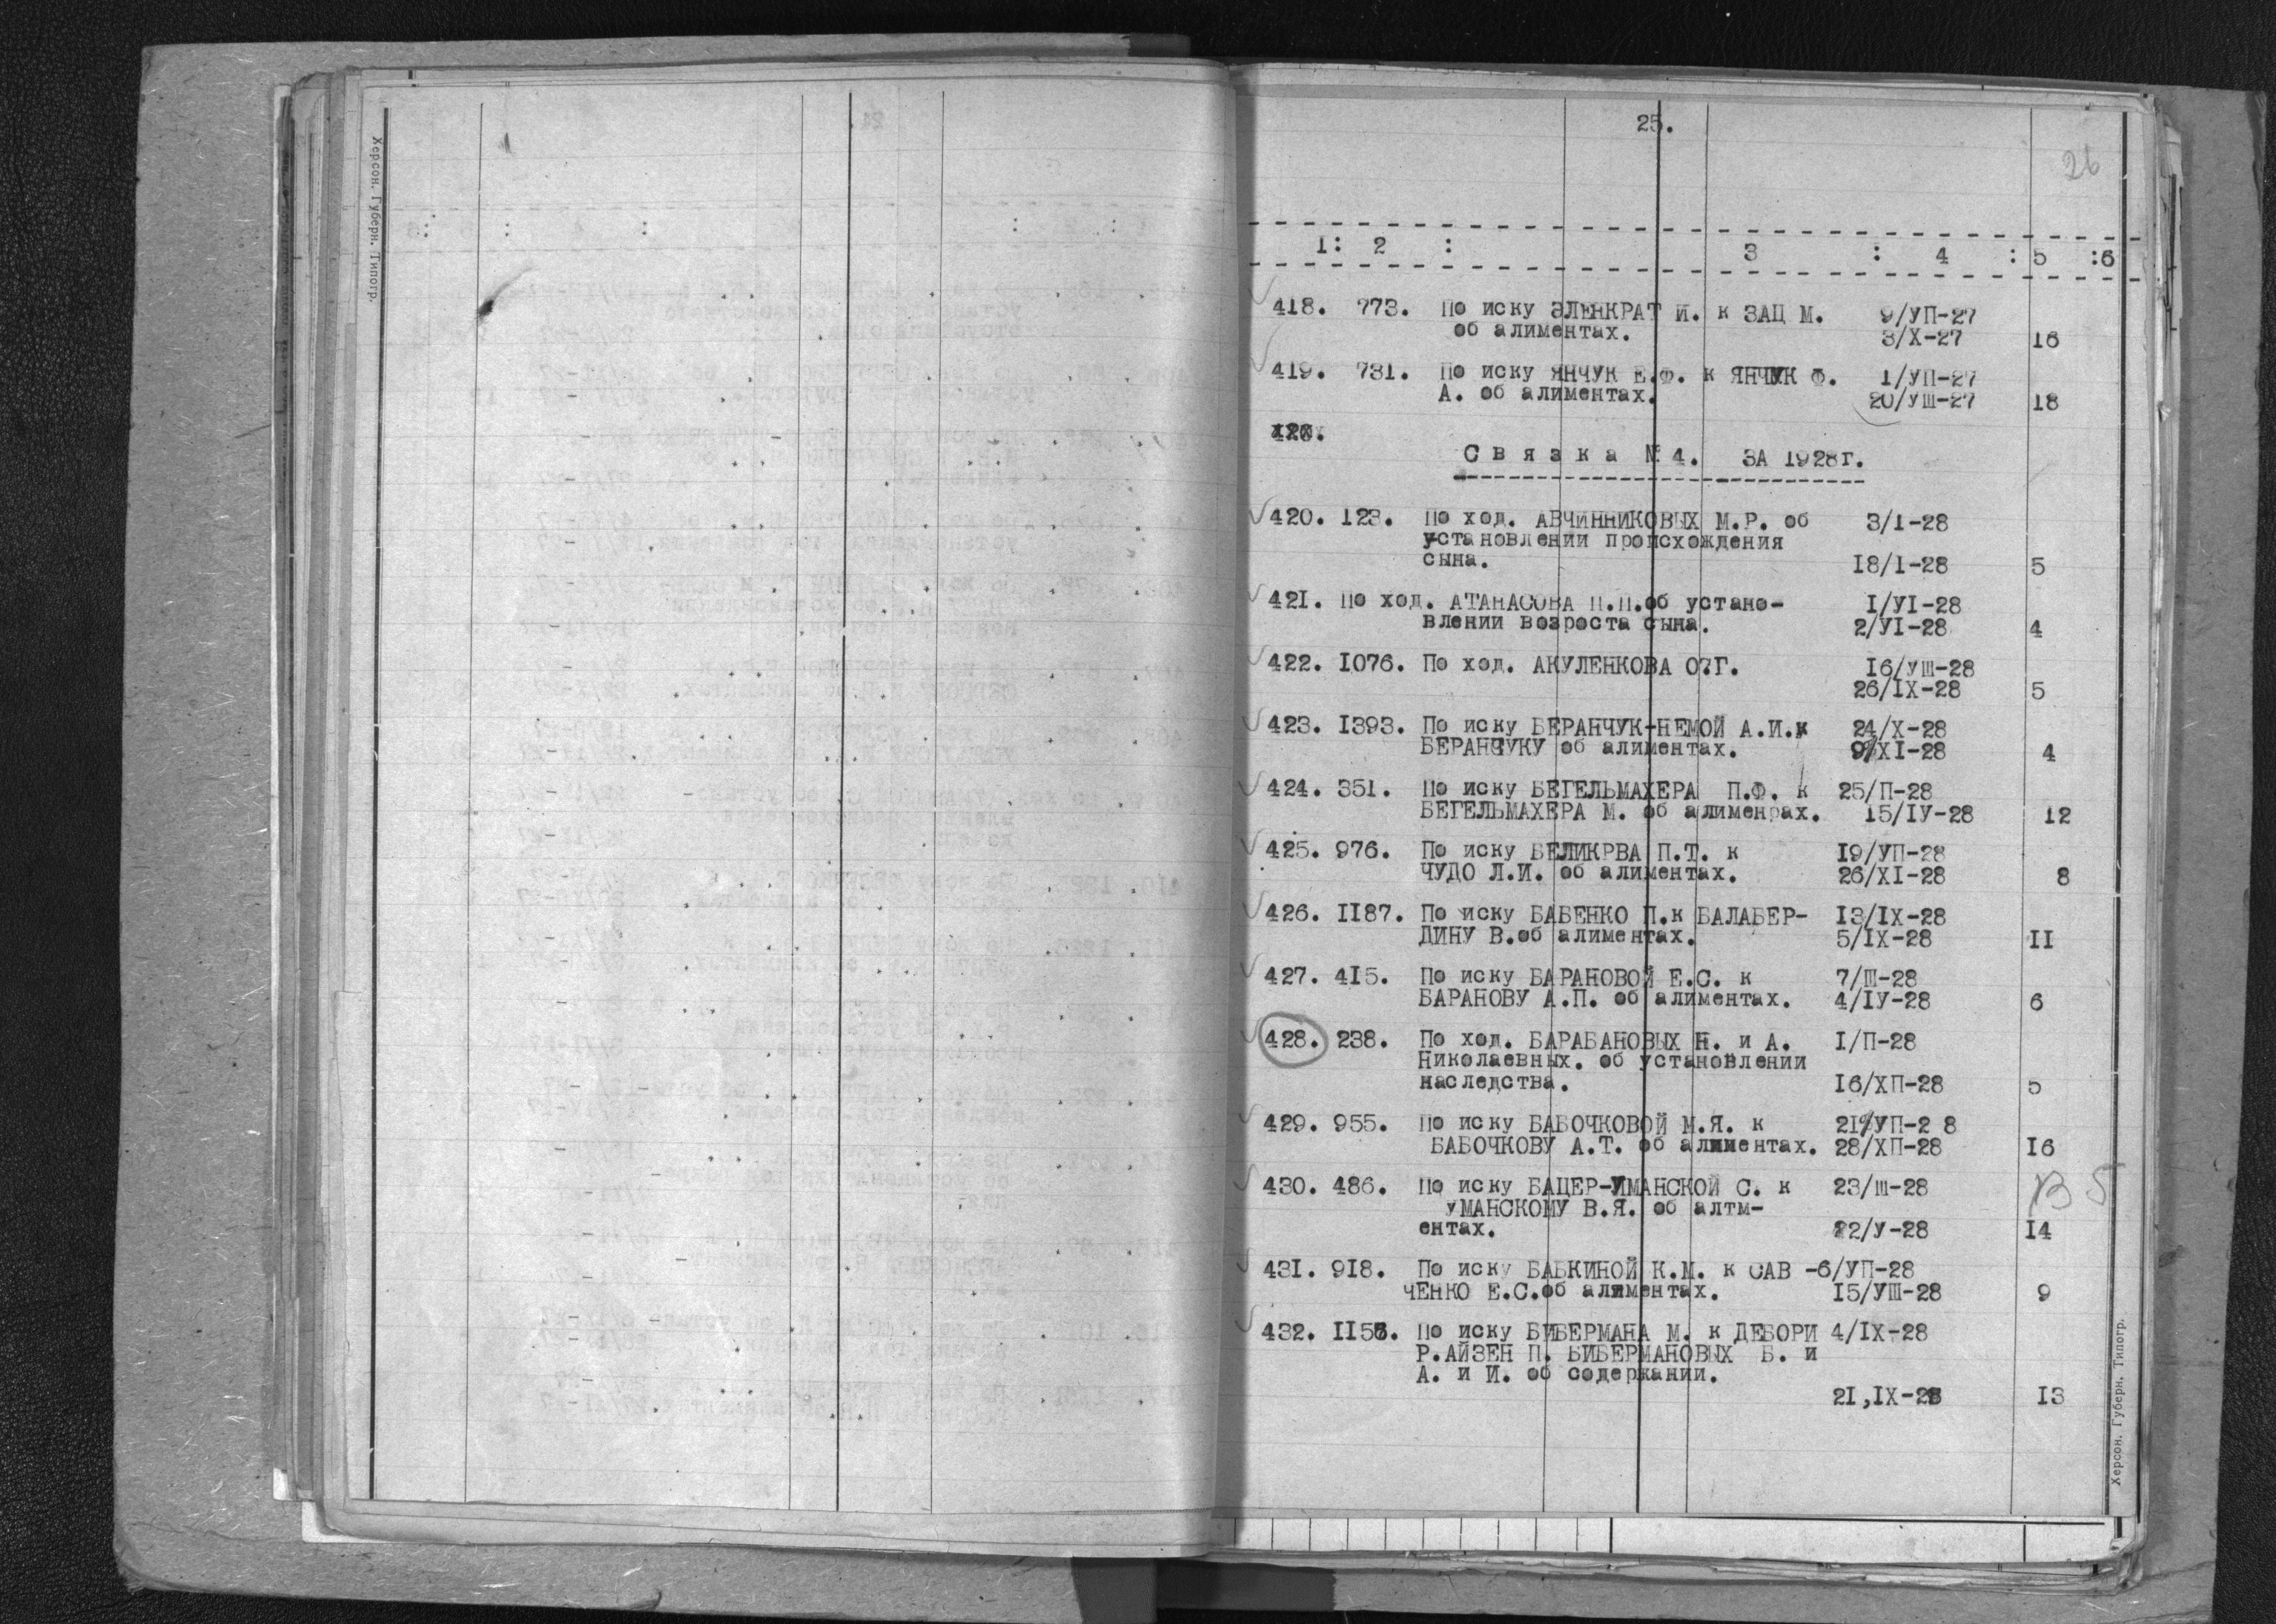 Херсон. Губерн. Типогр.
25.
26
1: 2 : 3 : 4 : 5 :6
418. 773. По иску ЭЛЕНКРАТ И. к ЗАЦ М. 9/УП-27
об алиментах. 3/Х-27 16
419. 731. По иску ЯНЧУК Е.Ф. к ЯНЧУК Ф. 1/УП-27
А. об алиментах. 20/УШ-27 18
Связка № 4. ЗА 1928г.
420. 123. По ход. АВЧИННИКОВЫХ М.Р. об 3/1-28
установлении происхождения
сына. 18/1-28 5
421. По ход. АТАНАСОВА П.П.об устано- I/УI-28
влении возроста сына. 2/УI-28 4
422. I076. По ход. АКУЛЕНКОВА О.Г. I6/УШ-28
26/IХ-28 5
423. I393. По иску БЕРАНЧУК-НЕМОЙ А.И.к 24/Х-28
БЕРАНЧУКУ об алиментах. 9/ХI-28 4
424. 351. По иску БЕГЕЛЬМАХЕРА П.Ф. к 25/П-28
БЕГЕЛЬМАХЕРА М. об алименрах. 15/IУ-28 12
425. 976. По иску БЕЛИКРВА П.Т. к I9/УП-28
ЧУДО Л.И. об алиментах. 26/ХI-28 8
426. II87. По иску БАБЕНКО П.к БАЛАБЕР- I3/IХ-28
ДИНУ В.об алиментах. 5/IХ-28 II
427. 4I5. По иску БАРАНОВОЙ Е.С. к 7/Ш-28
БАРАНОВУ А.П. об алиментах. 4/IУ-28 6
428. 238. По ход. БАРАБАНОВЫХ Н. и А. I/П-28
Николаевных. об установлении
наследства. I6/ХП-28 5
429. 955. По иску БАБОЧКОВОЙ М.Я. к 21/УП-2 8
БАБОЧКОВУ А.Т. об алиментах. 28/ХП-28 I6
430. 486. По иску БАЦЕР-УМАНСКОЙ С. к 23/Ш-28
УМАНСКОМУ В.Я. об алтм-
ентах. 22/У-28 I4
431. 918. По иску БАБКИНОЙ К.М. к САВ -6/УП-28
ЧЕНКО Е.С.об алиментах. I5/УШ-28 9
432. II55. По иску БИБЕРМАНА М. к ДЕБОРИ 4/IХ-28
Р.АЙЗЕН П. БИБЕРМАНОВЫХ Б. и
А. и И. об содержании.
21,IХ-28 I3
Херсон. Губерн. Типогр.